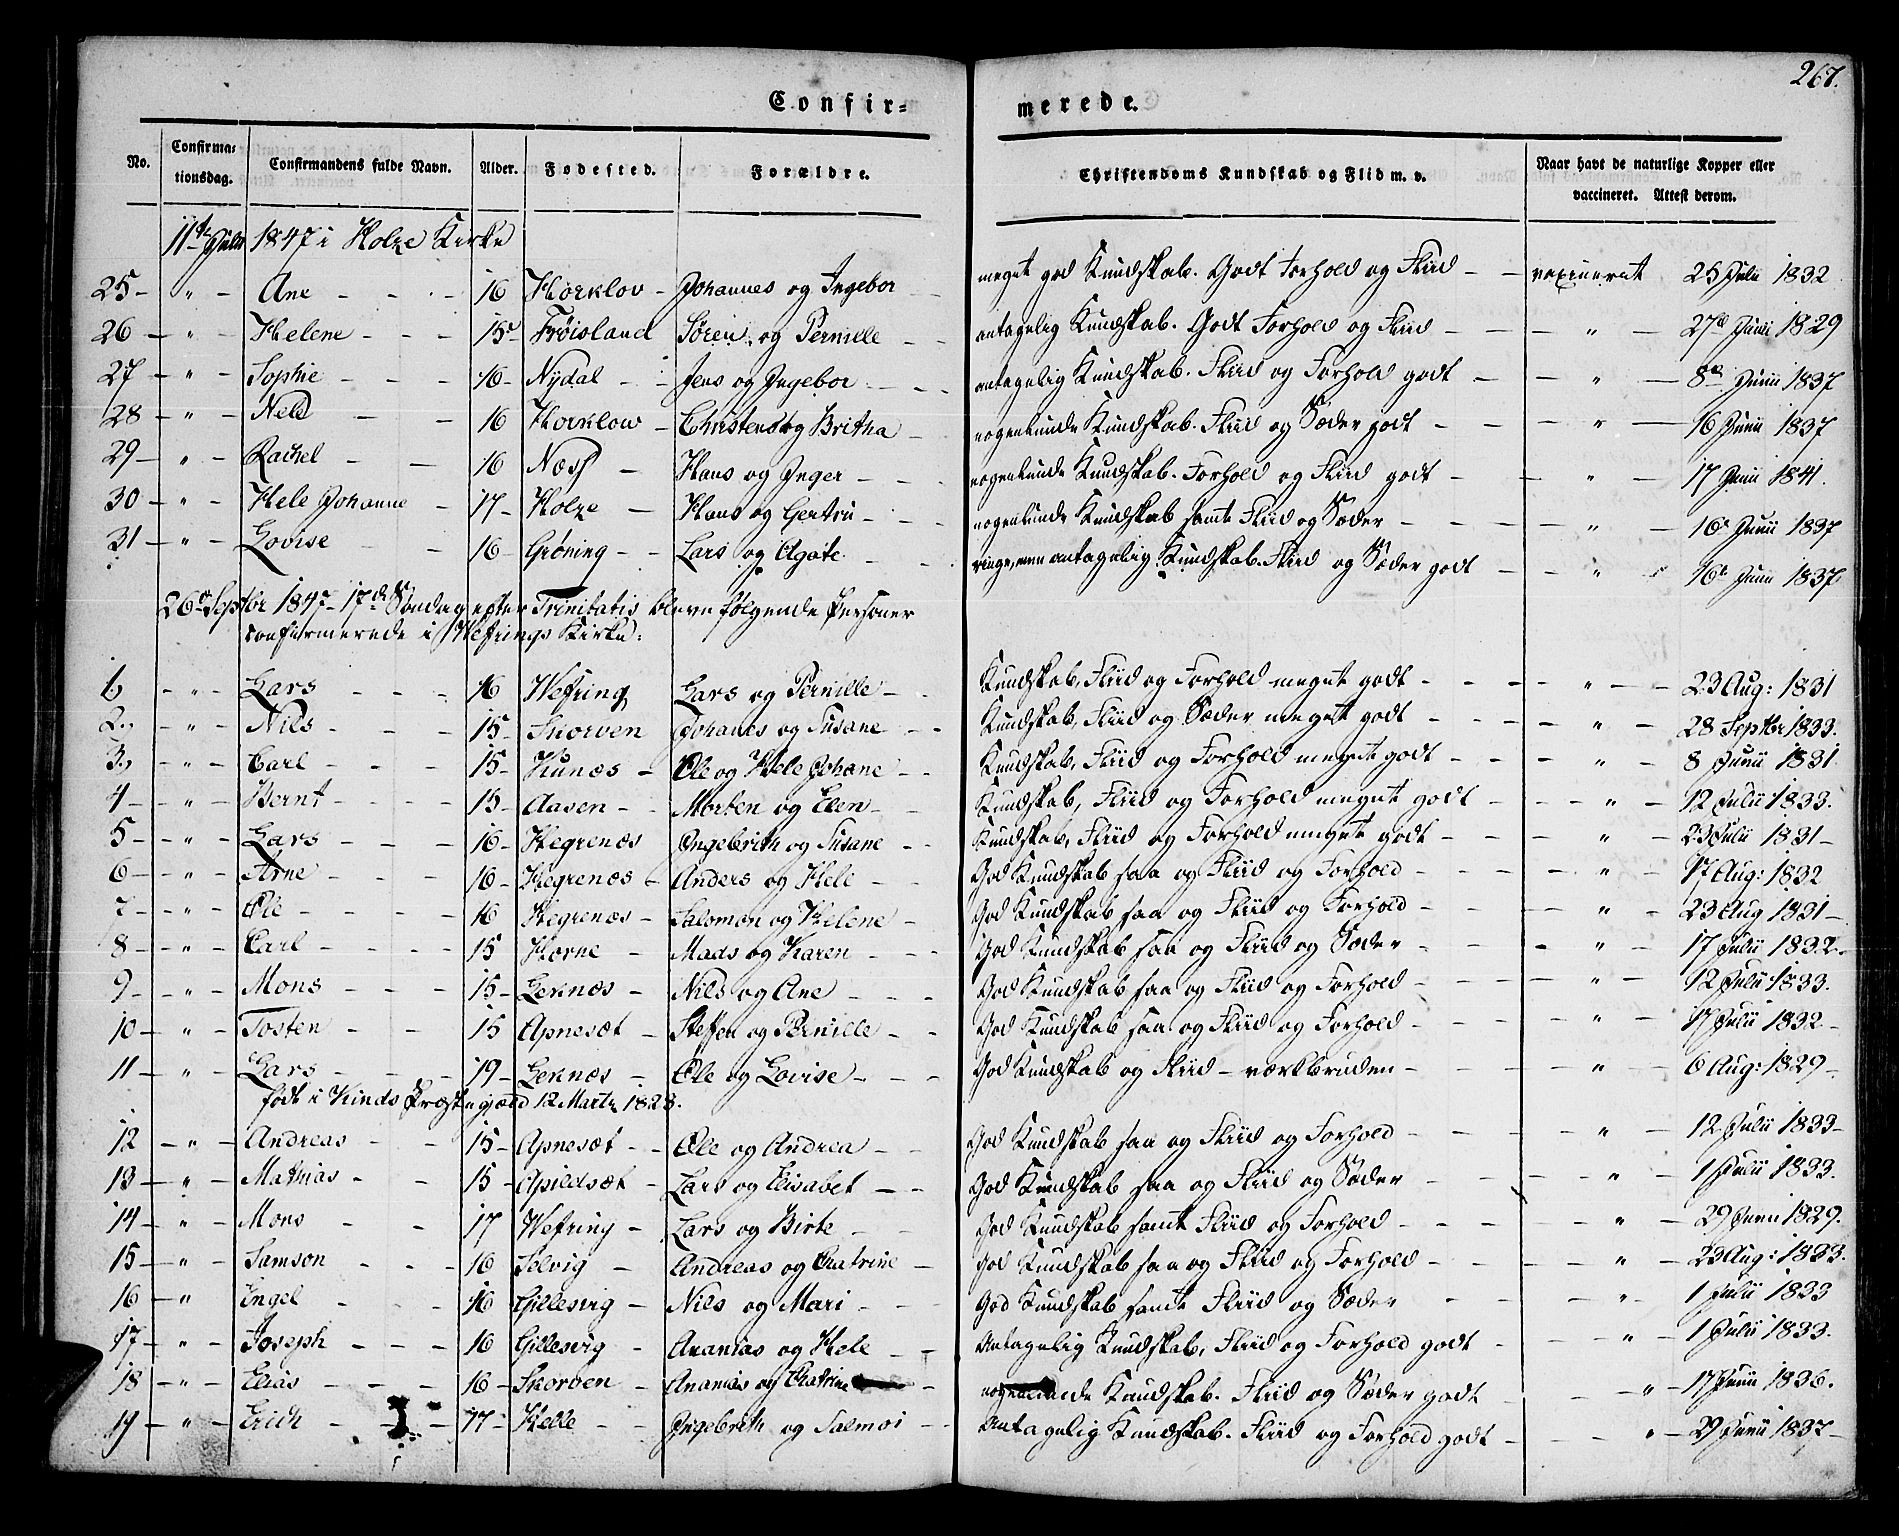 267.
Confir= merede.
No. Confirma=tionsdag. Confirmandens fulde Navn. Alder. Fødested. Forældre. Christendoms Kundskab og Flid m. v. Naar havt de naturlige Kopper eller vaccineret. Attest derom.
11te Julii 1847 i Holze Kirke
25 - " - Ane - - - 16 Horklov - Johannes og Ingebor - - meget god Kundskab. Godt Forhold og Fliid - - vaxineret 25 Julii 1832
26 - " - Helene - - - 15 - Frøisland Søren og Pernille - - antagelig Kundskab. Godt Forhold og Fliid - - - " - 27de Junii 1829
27 - " - Sophie - - - 16 - Nydal - - Jens og Ingebor - - - antagelig Kundskab. Fliid og Forhold godt - - " - 8de Junii 1837
28 - " - Nele - - 16 Horklow - Christen og Britha - nogenlunde Kundskab. Fliid og Sæder godt - - - " - 16 Junii 1837
29 - " - Rachel - - 16 Næss - Hans og Inger - - - nogenlunde Kundskab. Forhold og Fliid godt - - " - 17 Junii 1841.
30 - " - Hele Johanne - 17 - Holze - Hans og Gertru - - - nogenlunde Kundskab samt Fliid og Sæder - - - - " - 16 Junii 1837
31 - " - Lovise - - 16 - Grøning - - Lars og Agate - - ringe, men antagelig Kundskab. Fliid og Sæder godt - - " 16 Junii 1837.
26de Septbr 1847 - 17de Søndag efter Trinitatis bleve følgende Personer
confirmerede i Wefrings Kirke:
1, - " - Lars - - - 16 Wefring Lars og Pernille - - Kundskab, Fliid og Forhold meget godt - - - - " - - 23 Aug: 1831
2., - " - Nils - - - 15 - Skorven Johanes og Susane - - Kundskab, Fliid og Sæder meget godt - - - - " - 28 Septbr 1833.
3., - " - Carl - - - 15 - Kunæs - Ole og Hele Johane - - Kundskab, Fliid og Forhold meget godt - - - - " - 8 Junii 1831
4 - - " - Bernt - - - - 15 - Aasen - - Morten og Elen - - Kundskab, Fliid og Forhold meget godt - - - " - 12 Julii 1833.
5 - - " - Lars - - - 16 - Hegrenæs Ingebrith og Susane - - Kundskab, Fliid og Forhold meget godt - - - - " - 23 Julii 1831 -
6 - - " - Arne - - - 16 - Hegrenæs - Anders og Hele - - God Kundskab saa og Fliid og Forhold - - - - " - 17 Aug: 1832
7 - - " - Ole - - - - 16 Hegrenæs - Salomon og Helene - God Kundskab saa og Fliid og Forhold - - - - " - 23 Aug 1831 -
8 - - " - Carl - - - - 15 Horne - Mads og Karen - - - God Kundskab saa og Fliid og Sæder - - - - " - 17 Julii 1832.
9 - - " - Mons - - - 15 - Leknæs - Nils og Ane - - - God Kundskab saa og Fliid og Forhold - - - - " - 12 Julii 1833.
10 - - " - Tosten - - 15 Apnesæt - Steffen og Pernille - - God Kundskab saa og Fliid og Forhold - - - - " - 17 Julii 1832 -
11 - - " - Lars - - - - 19 - Leknæs - Ole og Lovise - - - God Kundskab og Fliid - værkbruden - - - - " - 6 Aug: 1829 -
født i Kinds Præstegjæld 12 Marts 1828.
12 - " - Andreas - - 15 - Apnesæt - - Ole og Andrea - - God Kundskab saa og Fliid og Forhold - - - - " - 12 Julii 1833 -
13 - " - Mathias - - 15 - Apildsæt - Lars og Elisabet - - God Kundskab saa og Fliid og Sæder - - - - " - 1 Julii 1833.
14 - " - Mons - - 17 Wefring - Lars og Birte - - God Kundskab samt Fliid og Forhold - - - - " - 29 Junii 1829.
15 - " - Samson - - - 16 Selvig - Andreas og Chatrine - God Kundskab saa og Fliid og Forhold - - - - " - 23 Aug: 1833.
16 - " Engel - - - 16 Gillesvig - Nils og Mari - - - God Kundskab samt Fliid og Sæder - - - - " - 1 Julii 1833
17 - " - Joseph - - - 16 Gillesvig - Ananias og Hele - - Antagelig Kundskab, Fliid og Forhold godt - - - " - 1 Julii 1833.
18 - " - Elias - - - 16 - Skorven - Ananias og Chatrine - nogenlunde Kundskab. Fliid og Sæder godt - - " - 17 Junii 1836.
19 - " - Erich - - - 17 - Helle - - Ingebrith og Salmoi - - Antagelig Kundskab. Fliid og Forhold godt - - - " - 29 Junii 1837 -